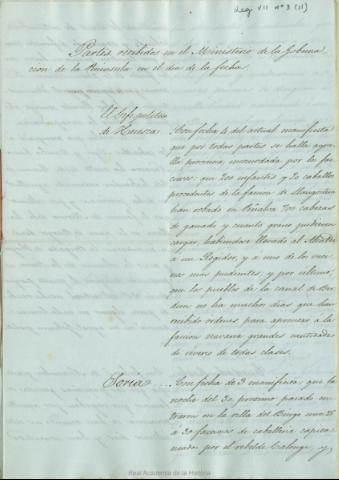 Leg VII nº 3 (11)
Partes recibidos en el Ministerio de la Goberna
cion de la Peninsula en el dia de la fecha.
El Gefe politico
de Huesca
Con fecha 4 del actual manifiesta
que por todas partes se halla aque-
lla provincia incomodada por la fac
ciosos: que 200 infantes y 20 caballos
procedentes de la faccion de
han robado en Peñalva 700 cabezas
de ganado y cuanto grano pudieron
cargar, habiendose llevado al Alcalde
a un Regidor, y a uno de los veci-
nos mas pudientes; y por ultimo,
que los pueblos de la canal de Ber-
dun no ha muchos dias que han
recibido ordenes para aprontar a la
faccion navarra grandes cantidades
de viveres de todas clases.
Soria ... Con fecha de 3 manifiesta, que la
noche del 30 proximo pasado en-
traron en la villa del Burgo unos 28
a 30 facciosos de caballeria capita-
neados por el rebelde Calonge, y,
Real Academia de la Historia